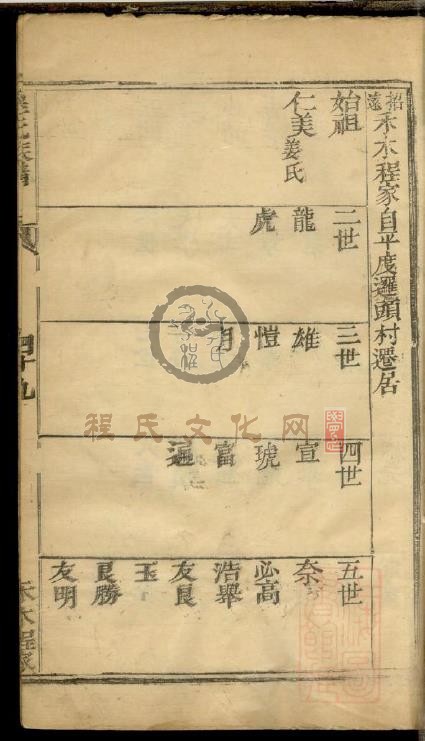 招遠
禾木程家自平度邏頭村遷居
始祖
仁美 姜氏
二世
龍
虎
三世
雄
愷
四世
宣
琥
富
五世
奈
必高
浩舉
友良
玉
良勝
友明
四十九
禾木程家
程氏文化网